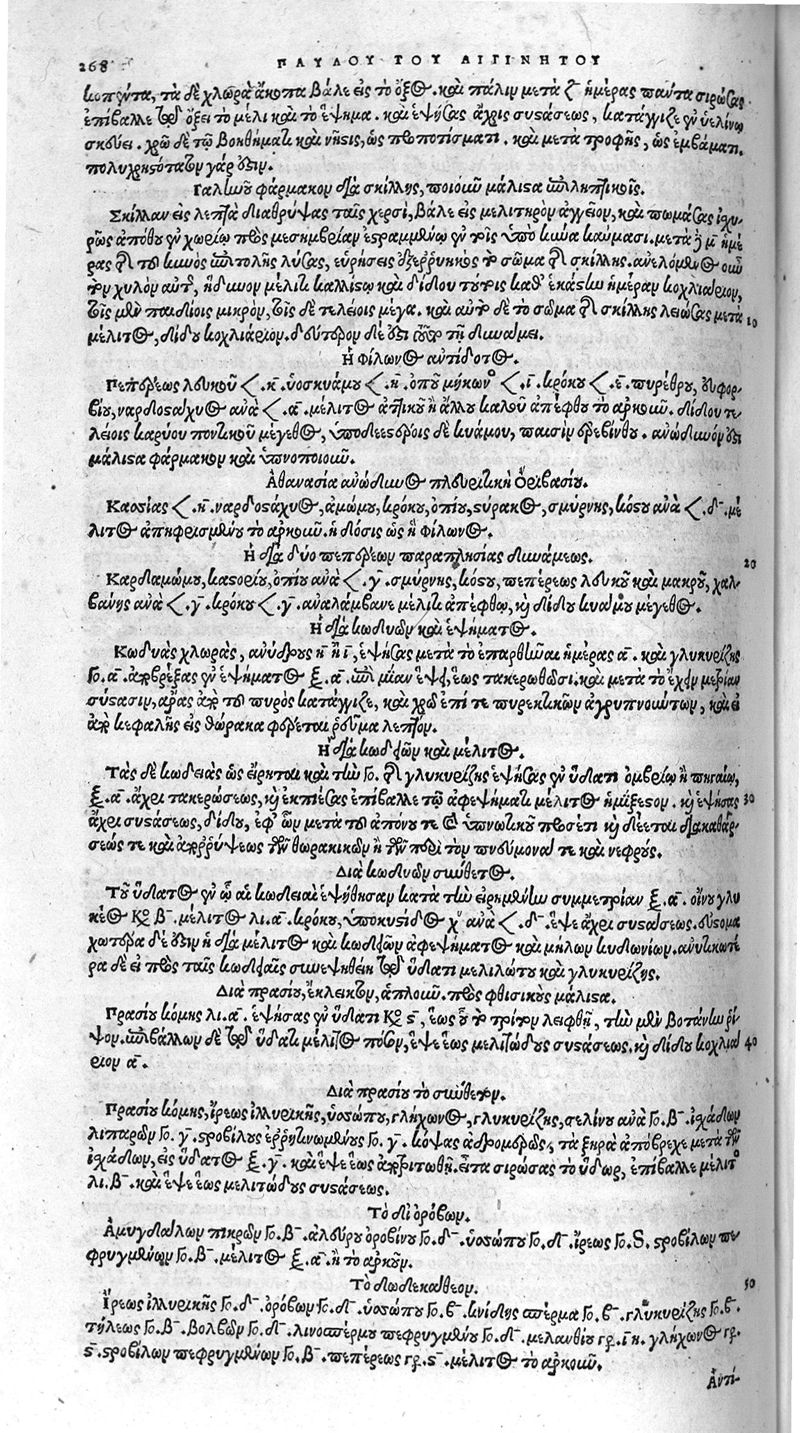 268 ΠΑΥΛΟΥ ΤΟΥ ΑΙΓΙΝΗΤΟΥ
κοπέντα, τὰ δὲ χλωρὰ ἄκοπα βάλε εἰς τὸ ὄξος. καὶ πάλιν μετὰ ζ ἡμέρας πάντα σιρώσας
ἐπίβαλλε τῷ ὄξει τὸ μέλι καὶ τὸ ἕψημα. καὶ ἑψήσας ἄχρις συστάσεως, κατάγγιζε ἐν ὑελίνῳ
σκεύει. χρῶ δὲ τῷ βοηθήματι καὶ νῆστις, ὡς προποτίσματι. καὶ μετὰ τροφῆς, ὡς ἐμβάματι.
πολυχρηστότατον γάρ ἐστιν.
Γαληνοῦ φάρμακον διὰ σκίλλης, ποιοῦν μάλιστα ἐπιληπτικοῖς.
Σκίλλαν εἰς λεπτὰ διαθρύψας ταῖς χερσὶ, βάλε εἰς μελιτηρὸν ἀγγεῖον, καὶ πωμάσας ἰσχυ-
ρῶς ἀπόθου ἐν χωρίῳ πρὸς μεσημβρίαν ἐστραμμένῳ ἐν τοῖς ὑπὸ κύνα καύμασι. μετὰ γ μ ἡμέ
ρας τῆς τοῦ κυνὸς ἐπιτολῆς λύσας, εὑρήσεις διεῤῥυηκὸς τὸ σῶμα τῆς σκίλλης. ἀνελόμενος οὖν
τὸν χυλὸν αὐτῆς, ἥδυνον μέλιτι καλλίστῳ καὶ δίδου τούτοις καθ' ἑκάστην ἡμέραν κοχλιάριον,
τοῖς μὲν παιδίοις μικρὸν, τοῖς δὲ τελείοις μέγα. καὶ αὐτὸ δὲ τὸ σῶμα τῆς σκίλλης λειώσας μετὰ 10
μέλιτος, δίδου κοχλιάριον. δεύτερον δέ ἐστι τοῦτο τῇ δυνάμει.
Ἡ Φίλωνος ἀντίδοτος.
Πεπέρεως λευκοῦ <. κ. ὑοσκυάμου <. κ. ὀποῦ μήκωνος <. ι. κρόκου <. ε. πυρέθρου, εὐφορ-
βίου, ναρδοστάχυος ἀνὰ <. α. μέλιτος ἀττικοῦ ἢ ἄλλου καλοῦ ἀπέφθου τὸ ἀρκοῦν. δίδου τε-
λείοις καρύου ποντικοῦ μέγεθος, ὑποδεεστέροις δὲ κυάμου, παισὶν ἐρεβίνθου. ἀνώδυνόν ἐστι
μάλιστα φάρμακον καὶ ὑπνοποιοῦν.
Ἀθανασία ἀνώδυνος πλευριτικὴ Ὀρειβασίου.
Κασίας <. κ. ναρδοστάχυος, ἀμώμου, κρόκου, ὀπίου, στύρακος, σμύρνης, κόστου ἀνὰ <. δ. μέ
λιτος ἀπηφρισμένου τὸ ἀρκοῦν. ἡ δόσις ὡς ἡ Φίλωνος.
Ἡ διὰ δύο πεπέρεων παραπλησίας δυνάμεως. 20
Καρδαμώμου, καστορίου, ὀπίου ἀνὰ <. γ. σμύρνης, κόστου, πεπέρεως λευκοῦ καὶ μακροῦ, χαλ-
βάνης ἀνὰ <. γ. κρόκου <. γ. ἀναλάμβανε μέλιτι ἀπέφθῳ, καὶ δίδου κυάμου μέγεθος.
Ἡ διὰ κωδυῶν καὶ ἑψήματος.
Κωδυὰς χλωρὰς, ἀνύδρους η ἢ ι, ἑψήσας μετὰ τὸ ἐπαρθῆναι ἡμέρας α. καὶ γλυκυρίζης
Γο. α. ἀποβρέξας ἐν ἑψήματος ξ. α. ἐπὶ μίαν ἕψε, ἕως τακερωθῶσι. καὶ μετὰ τὸ ἔχειν μετρίαν
σύστασιν, ἄρας ἀπὸ τοῦ πυρὸς κατάγγιζε, καὶ χρῶ ἐπί τε πυρεκτικῶν ἀγρυπνούντων, καὶ εἰ
ἀπὸ κεφαλῆς εἰς θώρακα φέρεται ῥεῦμα λεπτόν.
Ἡ διὰ κωδειῶν καὶ μέλιτος.
Τὰς δὲ κωδείας ὡς εἴρηται καὶ τὴν Γο. τῆς γλυκυρίζης ἑψήσας ἐν ὕδατι ὀμβρίῳ ἢ πηγαίῳ,
ξ. α. ἄχρι τακερώσεως, καὶ ἐκπιέσας ἐπίβαλλε τῷ ἀφεψήματι μέλιτος ἡμίξεστον. καὶ ἑψήσας 30
ἄχρι συστάσεως, δίδου, ἐφ' ὧν μετὰ τοῦ ἀπόνου τε καὶ ὑπνωτικοῦ προσέτι καὶ δέεται διακαθάρ-
σεώς τε καὶ ἀποῤῥύψεως τῶν θωρακικῶν ἢ τῶν περὶ τὸν πνεύμονά τε καὶ νεφρούς.
Διὰ κωδυῶν σύνθετος.
Τοῦ ὕδατος ἐν ᾧ αἱ κωδειαὶ ἑψήθησαν κατὰ τὴν εἰρημένην συμμετρίαν ξ. α. οἴνου γλυ
κέος Κο β. μέλιτος λι. α. κρόκου, ὑποκυστίδος χυ ἀνὰ <. δ. ἕψε ἄχρι συστάσεως. εὐστομα
χωτέρα δέ ἐστιν ἡ διὰ μέλιτος καὶ κωδειῶν ἀφεψήματος καὶ μήλων κυδωνίων. ἀνυτικωτέ
ρα δὲ εἰ πρὸς ταῖς κωδείαις συνεψηθείη τῷ ὕδατι μελιλώτου καὶ γλυκυρίζης.
Διὰ πρασίου, ἐκλεικτὸν, ἁπλοῦν. πρὸς φθισικοὺς μάλιστα.
Πρασίου κόμης λι. α. ἑψήσας ἐν ὕδατι Κο ς, ἕως οὗ τὸ τρίτον λειφθῇ, τὴν μὲν βοτάνην ῥί-
ψον. ἐπιβάλλων δὲ τῷ ὕδατι μέλιτος τὸ ἴσον, ἕψε ἕως μελιτώδους συστάσεως. καὶ δίδου κοχλιά 40
ριον α.
Διὰ πρασίου τὸ σύνθετον.
Πρασίου κόμης, ἴρεως ἰλλυρικῆς, ὑσώπου, γλήχωνος, γλυκυρίζης, σελίνου ἀνὰ Γο. β. ἰσχάδων
λιπαρῶν Γο. γ. στροβίλους ἐῤῥητινωμένους Γο. γ. κόψας ἁδρομερῶς, τὰ ξηρὰ ἀπόβρεχε μετὰ τῶν
ἰσχάδων, εἰς ὕδατος ξ. γ. καὶ ἕψε ἕως ἀποτριτωθῇ. εἶτα σιρώσας τὸ ὕδωρ, ἐπίβαλλε μέλιτος
λι. β. καὶ ἕψε ἕως μελιτώδους συστάσεως.
Τὸ δι' ὀρόβων.
Ἀμυγδάλων πικρῶν Γο. β. ἀλεύρου ὀροβίνου Γο. δ. ὑσώπου Γο. δ. ἴρεως Γο. S. στροβίλων πε-
φρυγμένων Γο. β. μέλιτος ξ. α. ἢ τὸ ἀρκοῦν.
Τὸ δωδεκάθεον. 50
Ἴρεως ἰλλυρικῆς Γο. δ. ὀρόβων Γο. δ. ὑσώπου Γο. β. κνίδης σπέρμα Γο. β. γλυκυρίζης Γο. β.
τήλεως Γο. β. βολβῶν Γο. δ. λινοσπέρμου πεφρυγμένου Γο. δ. μελανθίου γρ. ιη. γλήχωνος γρ.
ς. στροβίλων πεφρυγμένων Γο. β. πεπέρεως γρ. ς. μέλιτος τὸ ἀρκοῦν.
Ἀντί-